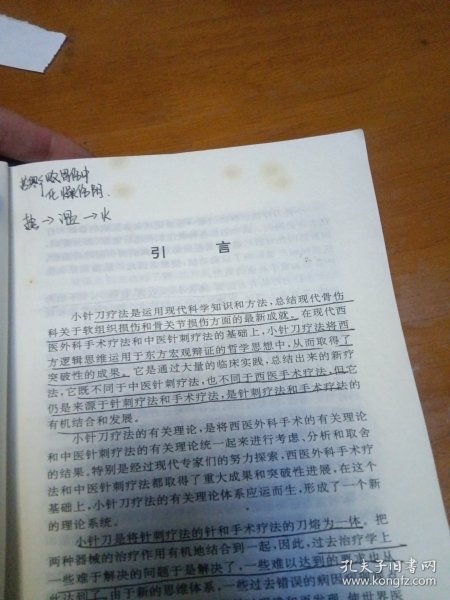 化燥伤阴.
→湿→火
引 言
小针刀疗法是运用现代科学知识和方法，总结现代骨伤
科关于软组织损伤和骨关节损伤方面的最新成就。在现代西
医外科手术疗法和中医针刺疗法的基础上，小针刀疗法将西
方逻辑思维运用于东方宏观辩证的哲学思想中，从而取得了
突破性的成果。它是通过大量的临床实践，总结出来的新疗
法，它既不同于中医针刺疗法，也不同于西医手术疗法，但它
仍是来源于针刺疗法和手术疗法，是针刺疗法和手术疗法的
有机结合和发展。
小针刀疗法的有关理论，是将西医外科手术的有关理论
和中医针刺疗法的有关理论统一起来进行考虑，分析和取舍
的结果。特别是经过现代专家们的努力探索，西医外科手术疗
法和中医针刺疗法都取得了重大成果和突破性进展，在这个
基础上，小针刀疗法的有关理论体系应运而生，形成了一个新
的理论系统。
小针刀是将针刺疗法的针和手术疗法的刀熔为一体。把
两种器械的治疗作用有机地结合到一起，因此，过去治疗学上
一些难于解决的问题于是解决了，一些难以达到的要求也从
此达到了。由于新的思维体系，一些过去错误的病因
使世界医
孔夫子旧书网